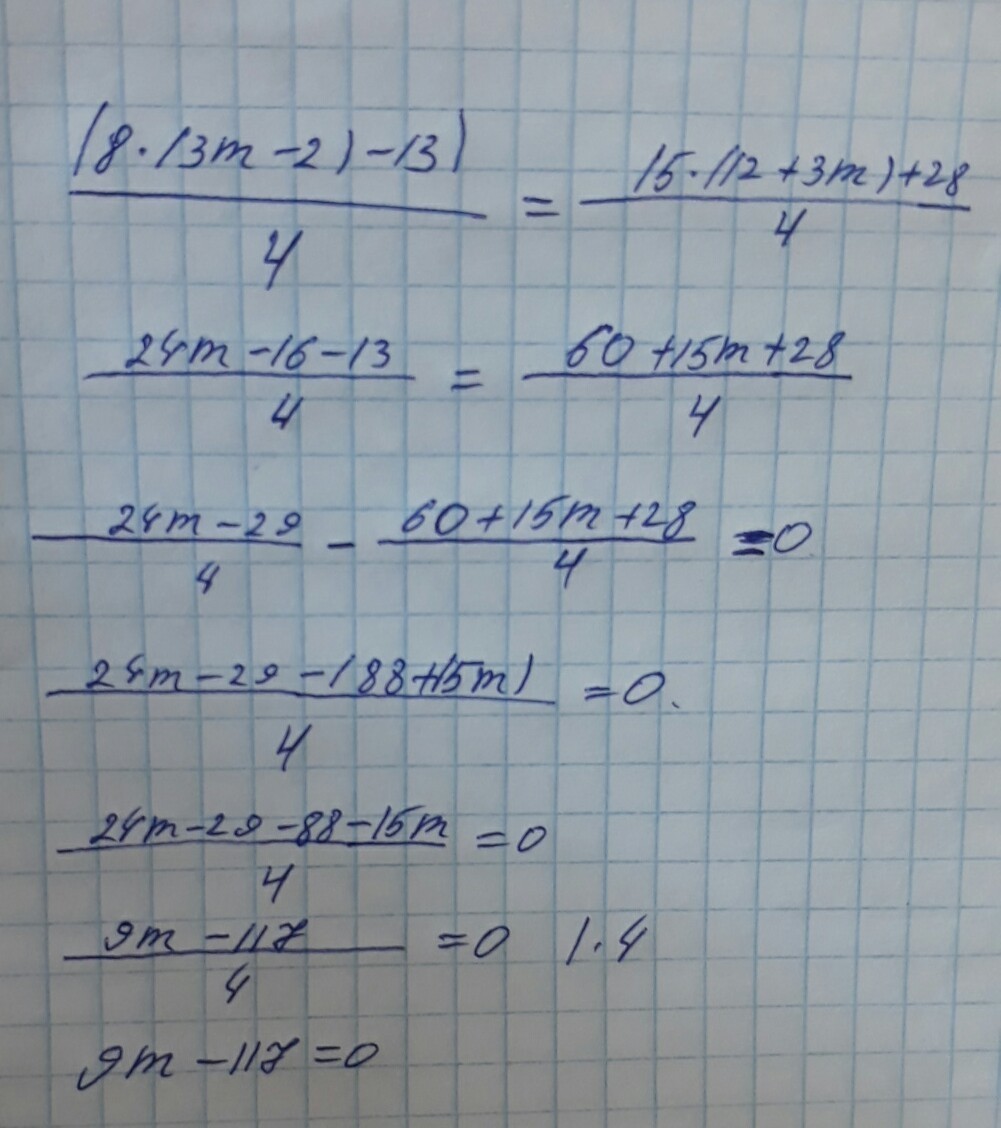 (8·(3m-2)-13) / 4 = (5·(12+3m)+28 / 4
24m-16-13 / 4 = 60+15m+28 / 4
24m-29 / 4 - 60+15m+28 / 4 =0
24m-29-(88+15m) / 4 =0.
24m-29-88-15m / 4 =0
9m-117 / 4 =0 |·4
9m-117=0